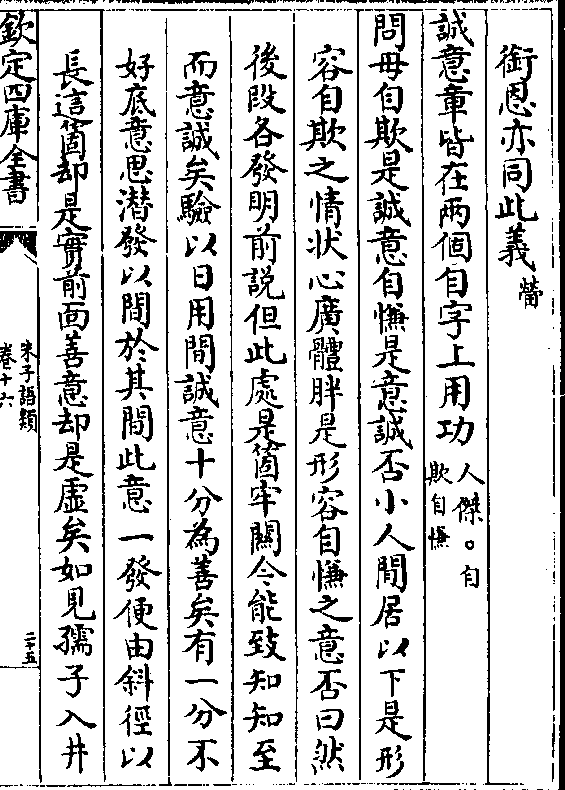 銜恩亦同此義 㽦
誠意章皆在兩個自字上用功 人傑。自欺自慊
問毋自欺是誠意自慊是意誠否小人閒居以下是形
容自欺之情状心廣體胖是形容自慊之意否曰然
後段各發明前説但此處是箇牢關今能致知知至
而意誠矣驗以日用間誠意十分為善矣有一分不
好底意思潜發以間於其間此意一發便由斜徑以
長這箇却是實前面善意却是虛矣如見孺子入井
欽定四庫全書
朱子語類
卷十六
二十五